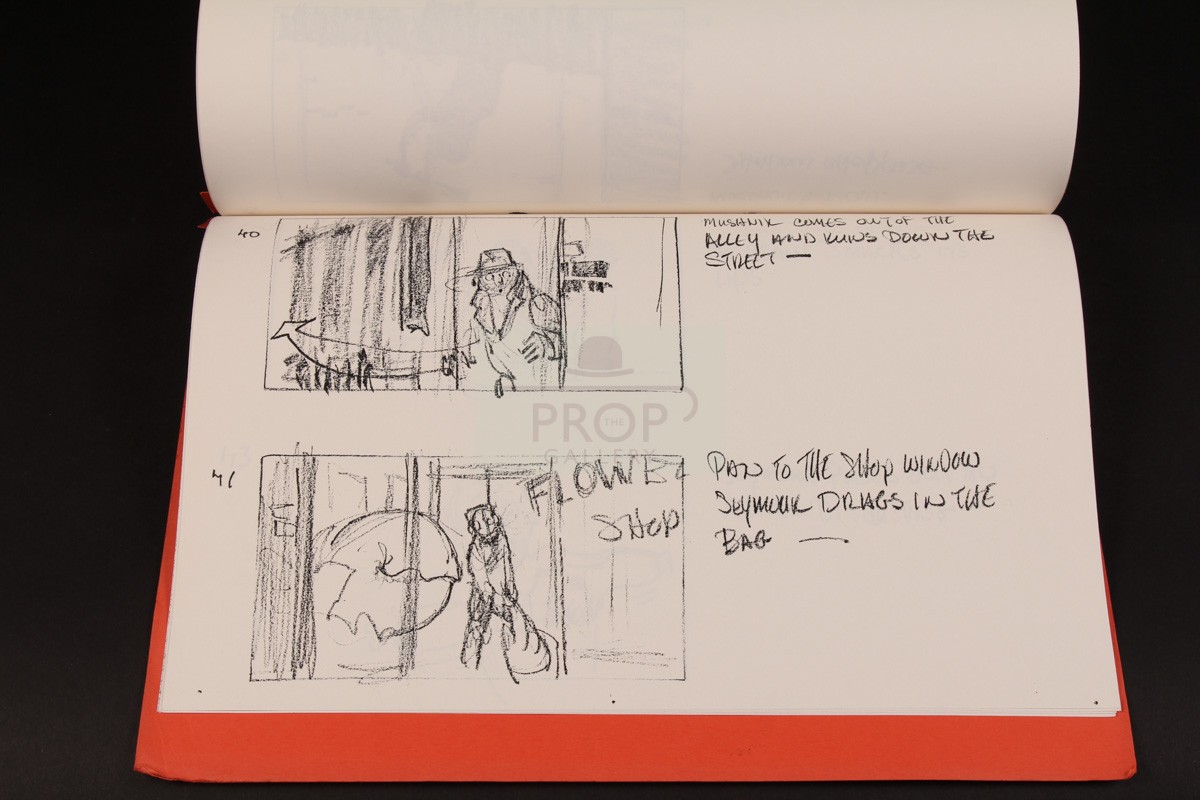 40
MUSHNIK COMES OUT OF THE
ALLEY AND RUNS DOWN THE
STREET —
THE
PROP
GALLERY
41
FLOWER
SHOP
PAN TO THE SHOP WINDOW
SEYMOUR DRAGS IN THE
BAG —